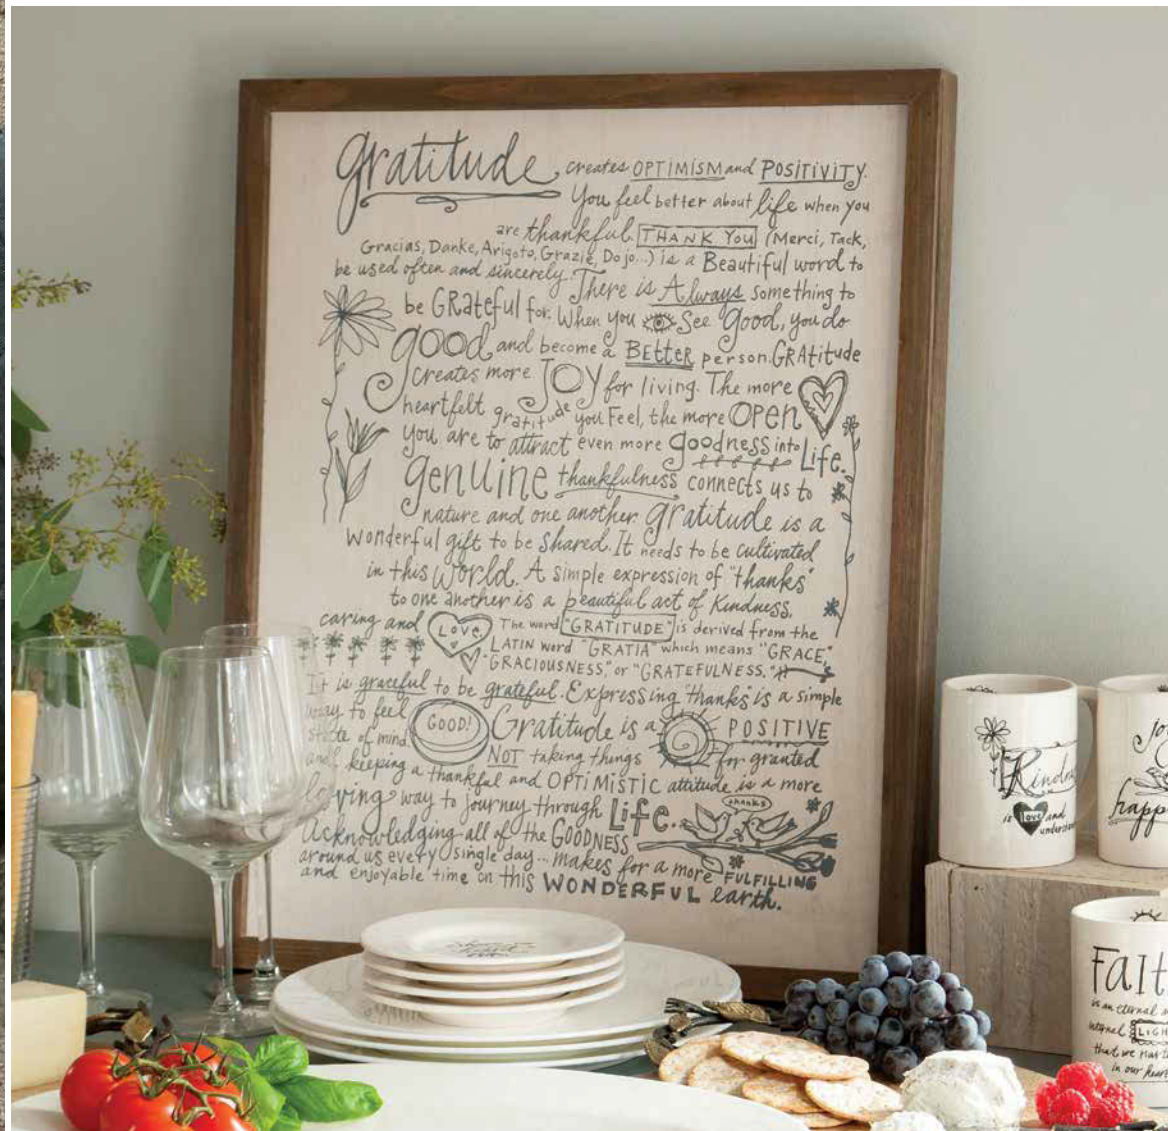 gratitude creates OPTIMISM and POSITIVITY.
You feel better about life when you
are thankful. THANK YOU (Merci, Tack,
Gracias, Danke, Arigoto, Grazie, Dojo...) is a Beautiful word to
be used often and sincerely. There is Always something to
be GRateful for. When you See good, you do
good and become a BEtter person. GRAtitude
creates more JOY for living. The more
heartfelt gratitude you Feel, the more OPEN
you are to attract even more goodness into Life.
genuine thankfulness connects us to
nature and one another. gratitude is a
wonderful gift to be shared. It needs to be cultivated
in this world. A simple expression of "thanks"
to one another is a beautiful act of Kindness,
caring and LOVE. The word "GRATITUDE" is derived from the
LATIN word "GRATIA" which means "GRACE",
"GRACIOUSNESS", or "GRATEFULNESS."
It is graceful to be grateful. Expressing thanks is a simple
way to feel GOOD! Gratitude is a POSITIVE
state of mind. NOT taking things for granted
and keeping a thankful and OPTIMISTIC attitude is a more
loving way to journey through Life. thanks
Acknowledging all of the GOODNESS
around us every single day... makes for a more FULFILLING
and enjoyable time on this WONDERFUL earth.
is love and
happ
FAIT
is an eternal
LIGH
in our hear